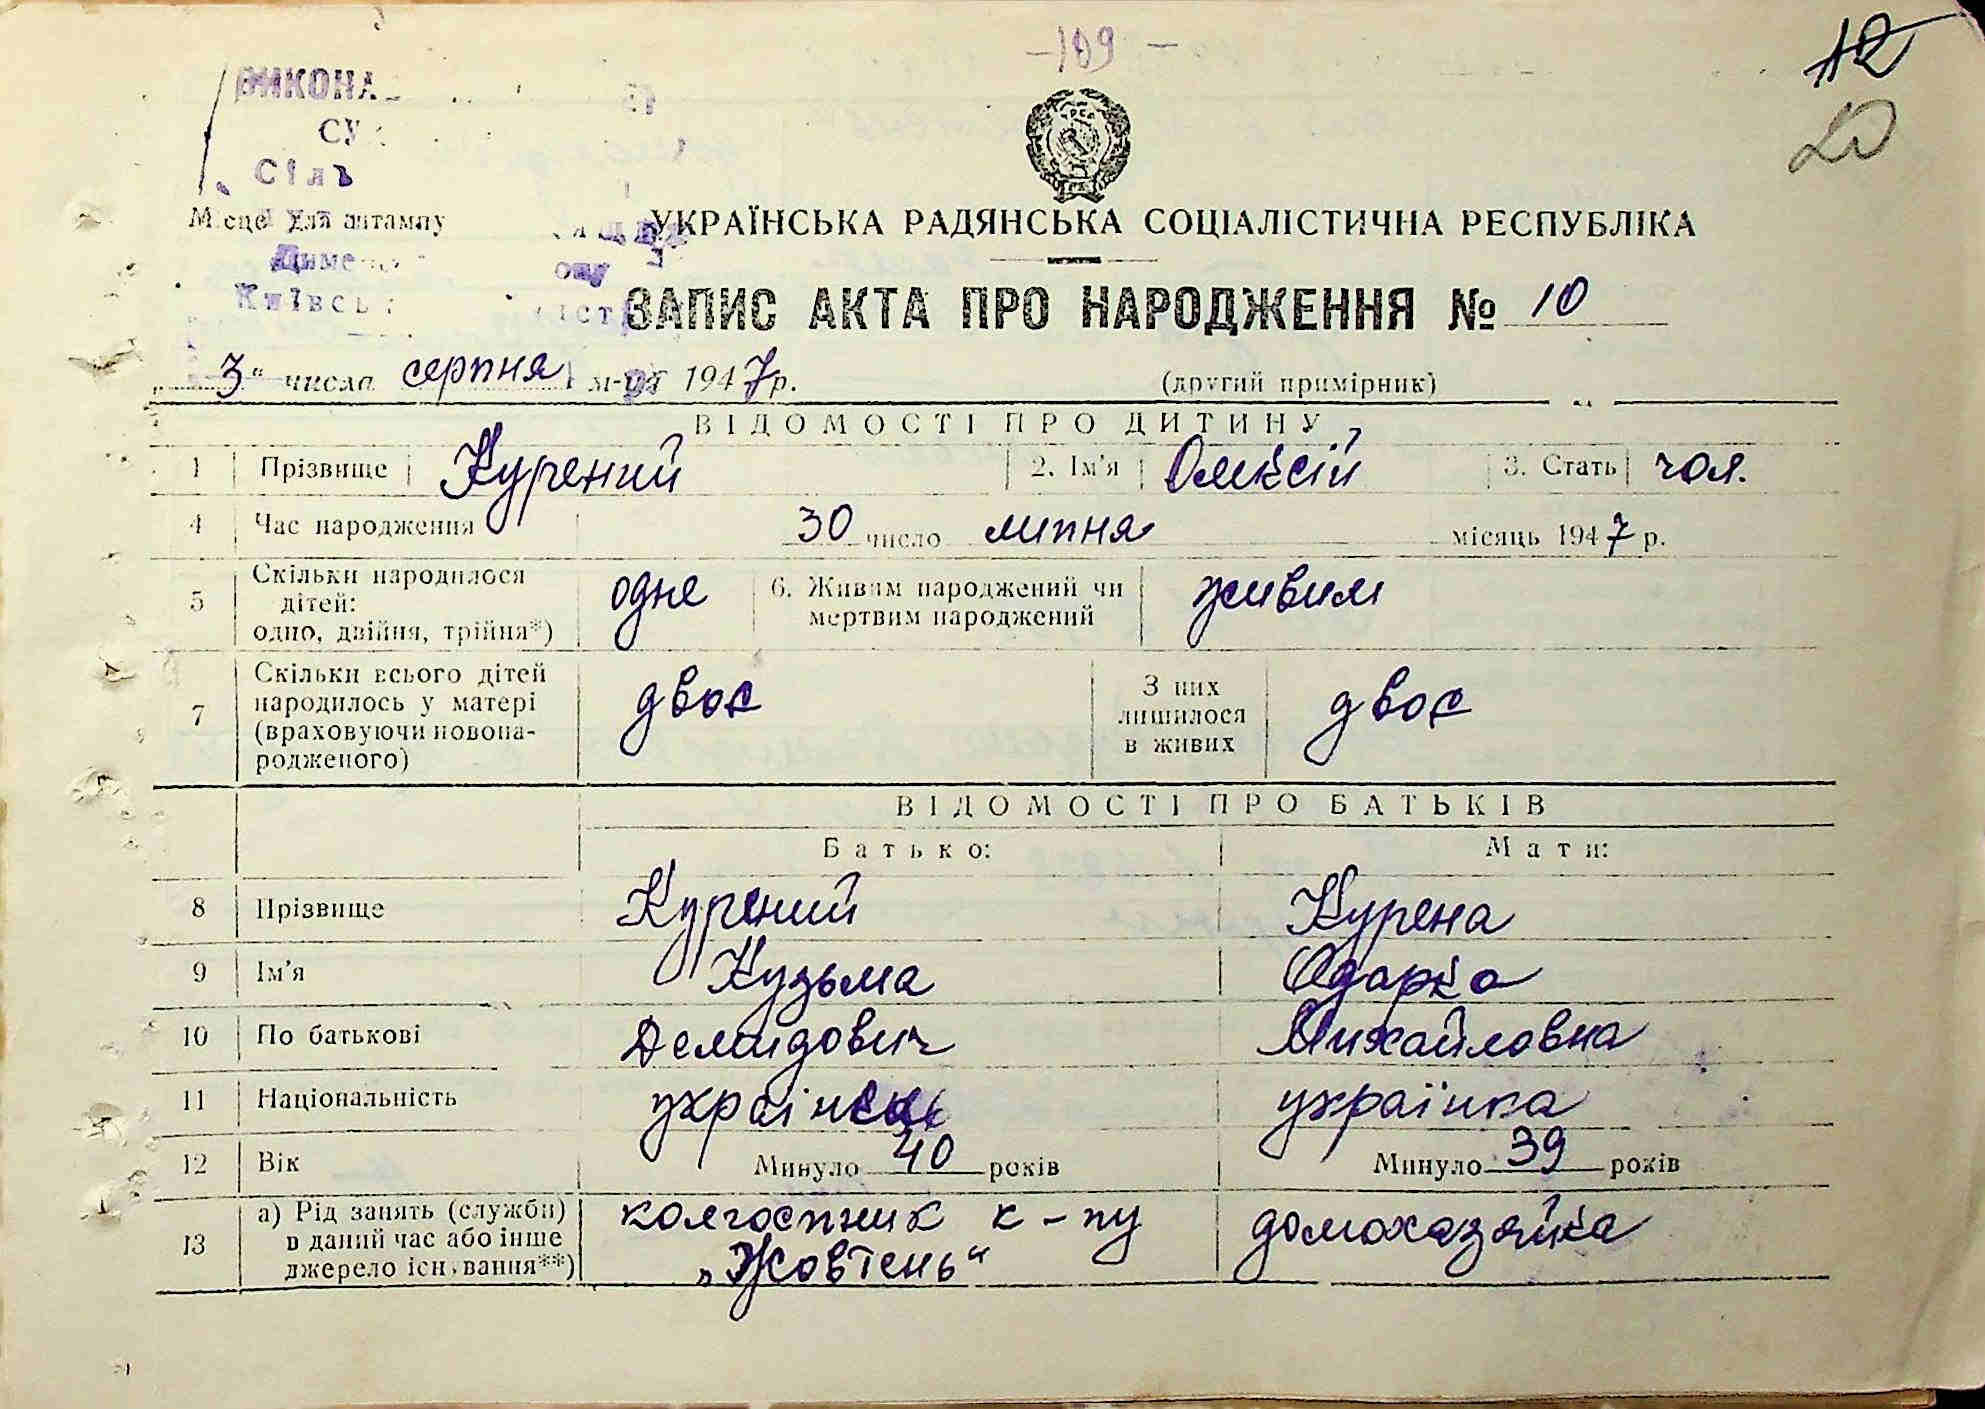 -109-
12
20
ВИКОНА
СУ
Сіль
Місце для штампу
УКРАЇНСЬКА РАДЯНСЬКА СОЦІАЛІСТИЧНА РЕСПУБЛІКА
Диме
Київсь
ЗАПИС АКТА ПРО НАРОДЖЕННЯ № 10
„3“ числа серпня м-ця 1947 р.
(другий примірник)
ВІДОМОСТІ ПРО ДИТИНУ
1 Прізвище Курений 2. Ім'я Олексій 3. Стать чол.
4 Час народження 30 число липня місяць 1947 р.
5 Скільки народилося дітей: одно, двійня, трійня*) одне 6. Живим народжений чи мертвим народжений живим
7 Скільки всього дітей народилось у матері (враховуючи новонародженого) двоє З них лишилося в живих двоє
ВІДОМОСТІ ПРО БАТЬКІВ
Батько: Мати:
8 Прізвище Курений Курена
9 Ім'я Кузьма Одарка
10 По батькові Демидович Михайловна
11 Національність українець українка
12 Вік Минуло 40 років Минуло 39 років
13 а) Рід занять (служби) в даний час або інше джерело існування**) колгоспник к-пу „Жовтень“ домохазяйка